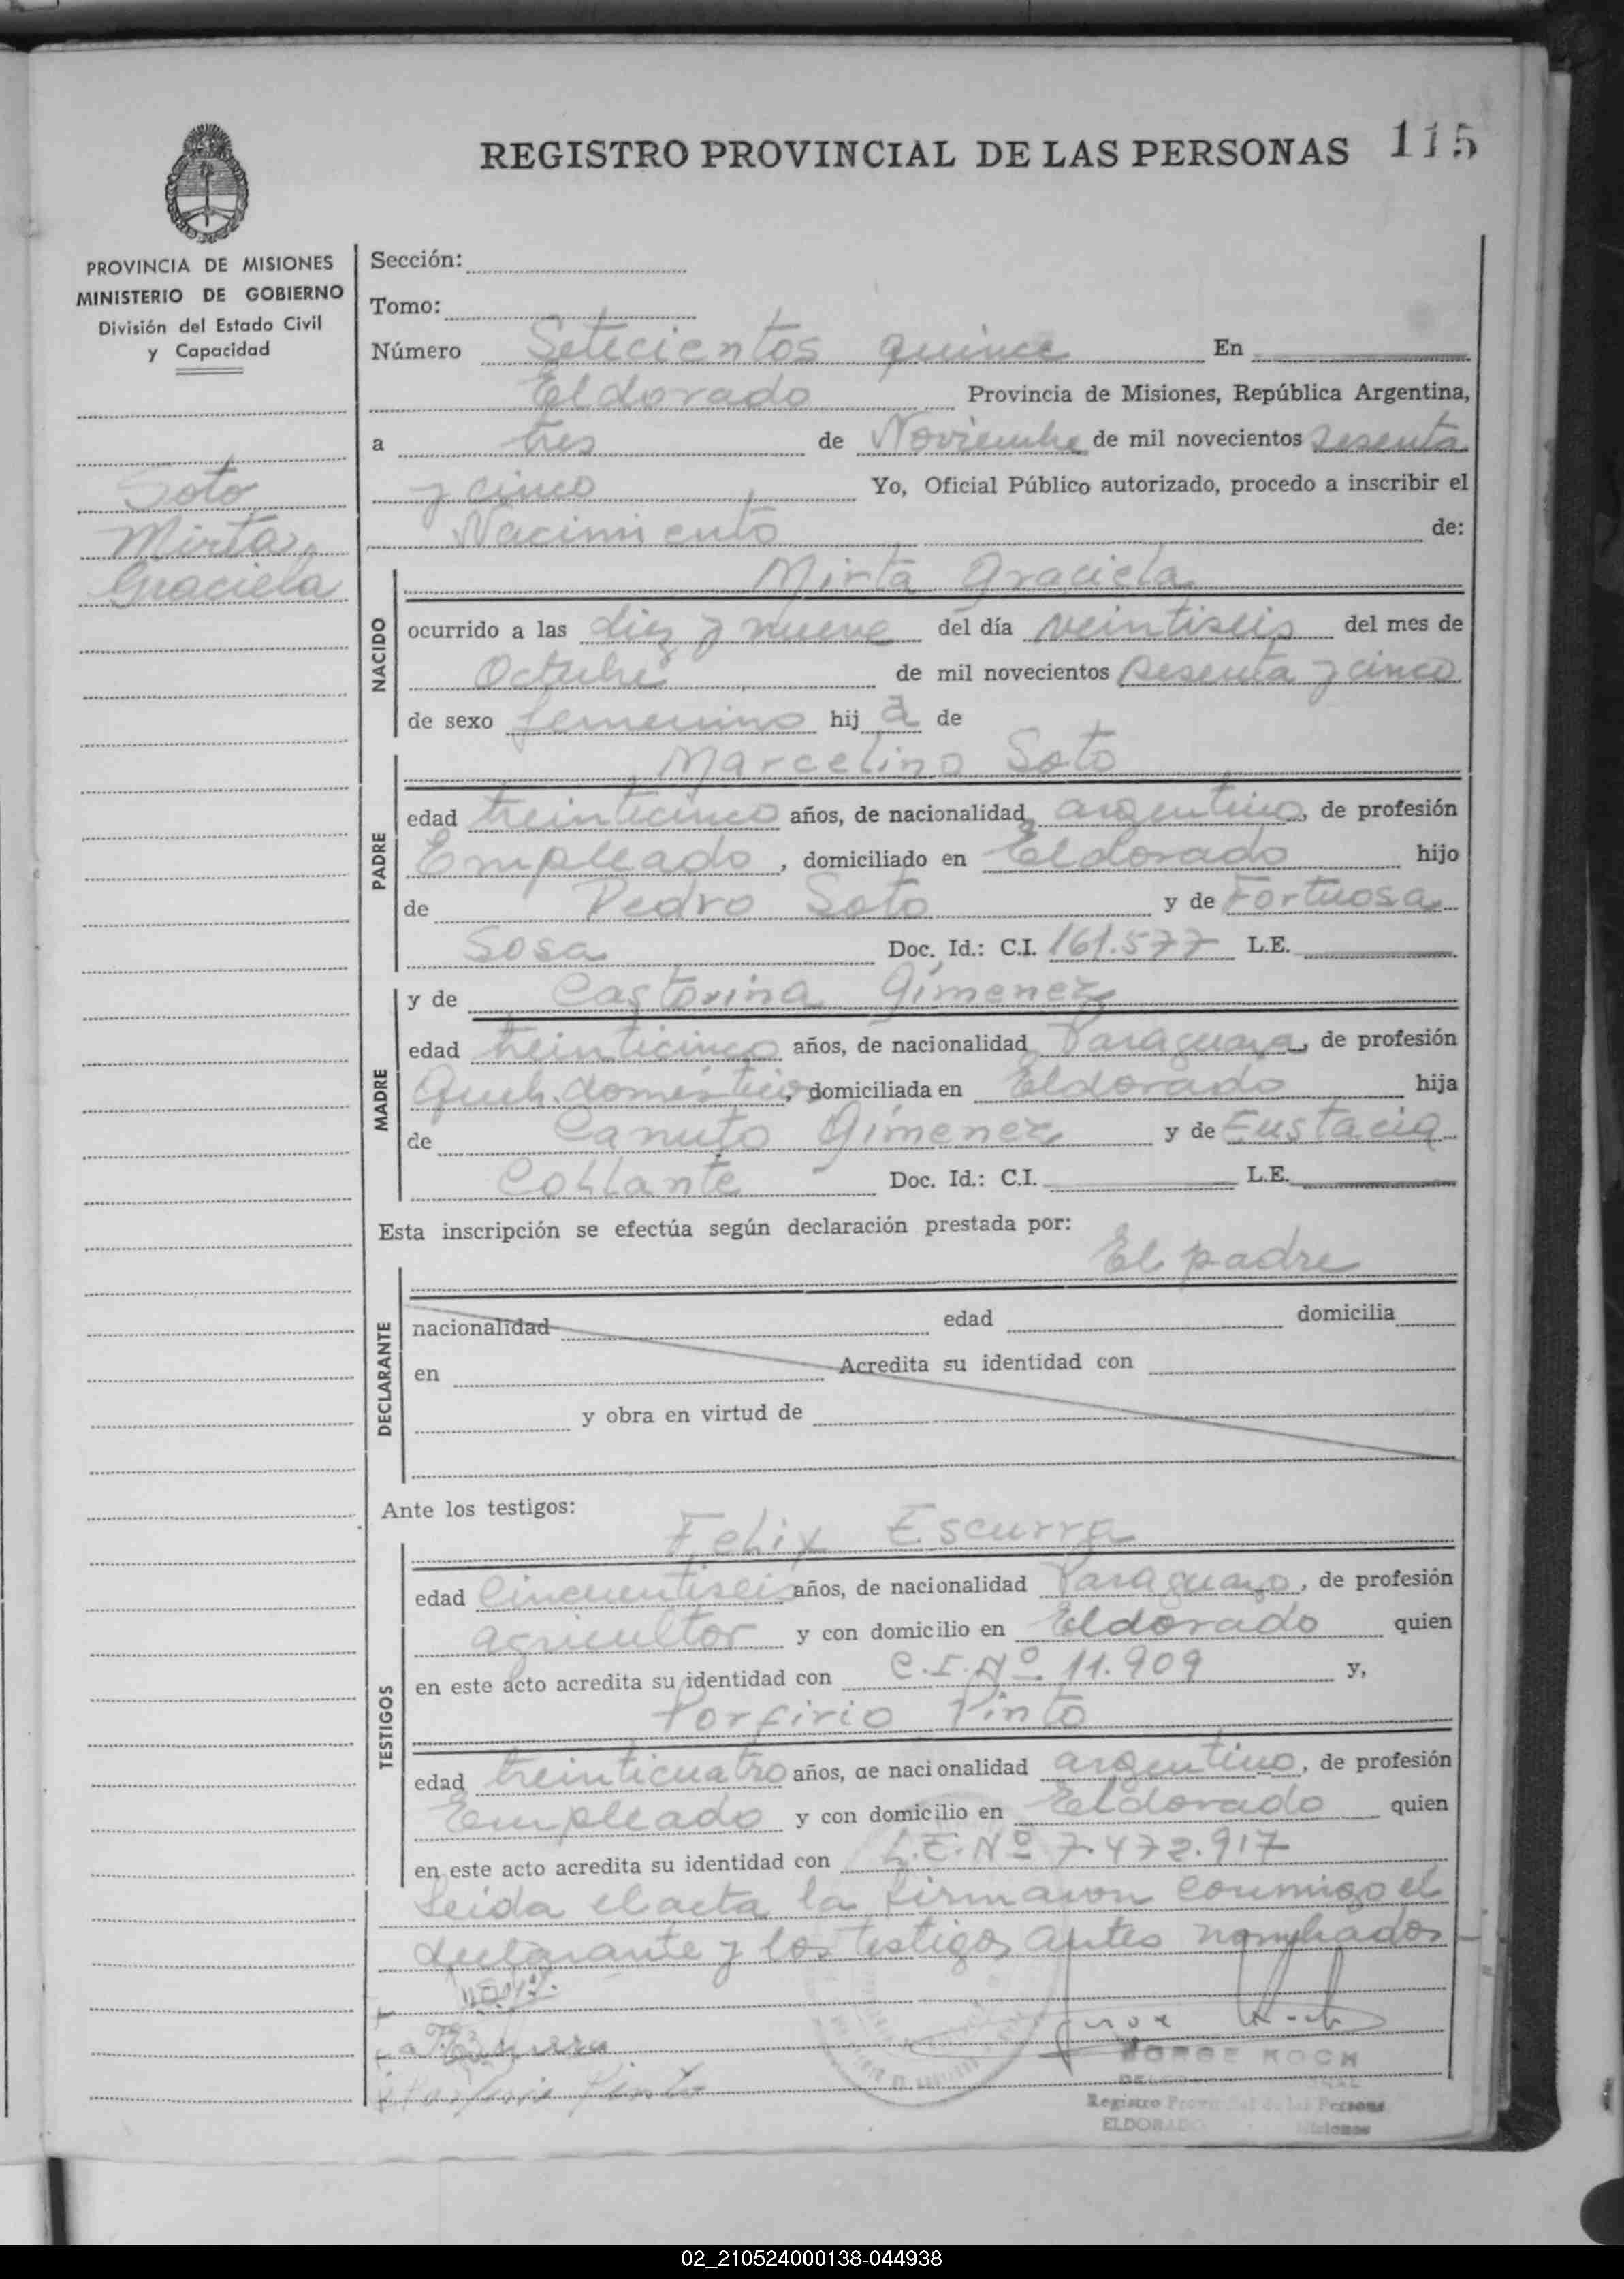 REGISTRO PROVINCIAL DE LAS PERSONAS 115
PROVINCIA DE MISIONES
MINISTERIO DE GOBIERNO
División del Estado Civil
y Capacidad
Soto
Mirta
Graciela
Sección:
Tomo:
Número Setecientos quince En
Eldorado Provincia de Misiones, República Argentina,
a tres de Noviembre de mil novecientos sesenta
y cinco Yo, Oficial Público autorizado, procedo a inscribir el
Nacimiento de:
NACIDO
Mirta Graciela
ocurrido a las diez y nueve del día veintiseis del mes de
Octubre de mil novecientos sesenta y cinco
de sexo femenino hij a de
PADRE
Marcelino Soto
edad treinticinco años, de nacionalidad argentino, de profesión
Empleado, domiciliado en Eldorado hijo
de Pedro Soto y de Fortuosa
Sosa Doc. Id.: C.I. 161.577 L.E.
MADRE
y de Castorina Gimenez
edad treinticinco años, de nacionalidad Paraguaya, de profesión
Queh. domestico, domiciliada en Eldorado hija
de Canuto Gimenez y de Eustacia
Collante Doc. Id.: C.I. L.E.
Esta inscripción se efectúa según declaración prestada por:
El padre
DECLARANTE
nacionalidad edad domicilia
en Acredita su identidad con
y obra en virtud de
Ante los testigos:
TESTIGOS
Felix Escurra
edad Cincuentiseis años, de nacionalidad Paraguayo, de profesión
agricultor y con domicilio en Eldorado quien
en este acto acredita su identidad con C.I.Nº 11.909 y,
Porfirio Pinto
edad treinticuatro años, de nacionalidad argentino, de profesión
Empleado y con domicilio en Eldorado quien
en este acto acredita su identidad con L.E.Nº 7.472.917
Leida el acta la firmaron conmigo el
declarante y los testigos antes nombrados
Porfirio Pinto
JORGE KOCH
Registro Provincial de las Personas
ELDORADO Misiones
02_210524000138-044938